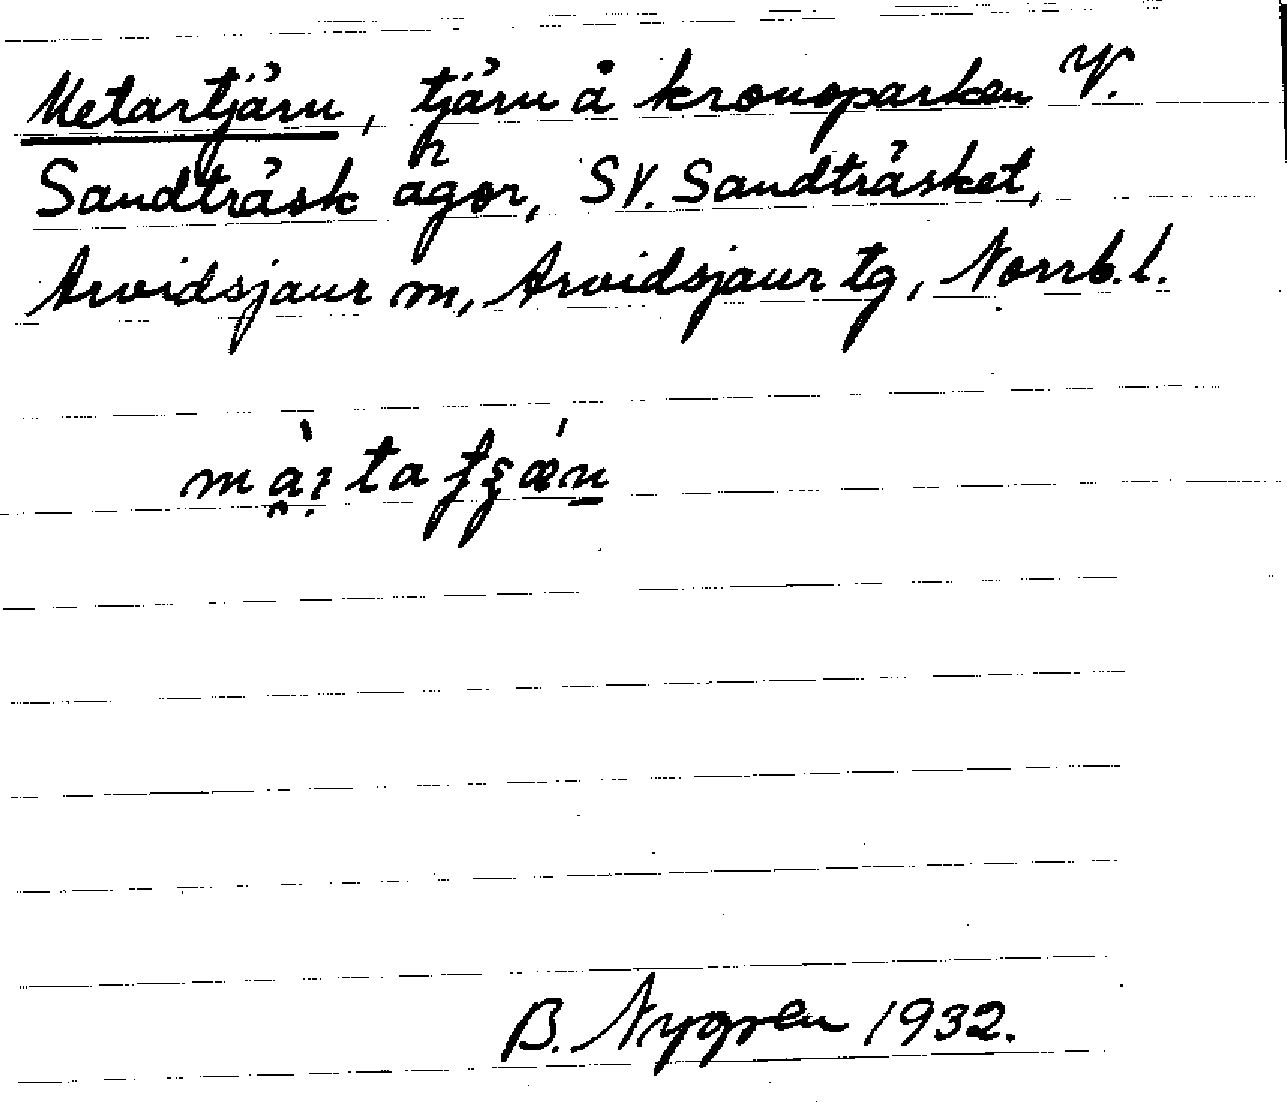 Metartjärn, tjärn å kronoparken V.
Sandträsk ägor, SV. Sandträsket,
Arvidsjaur sn, Arvidsjaur tg, Norrb.l.
B. Nygren 1932.